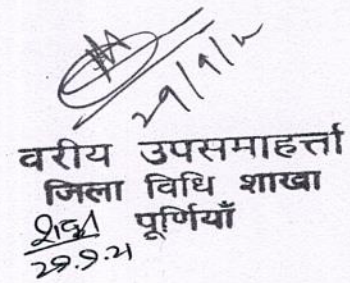 29/9/21
वरीय उपसमाहर्त्ता
जिला विधि शाखा
पूर्णियाँ
29.9.21